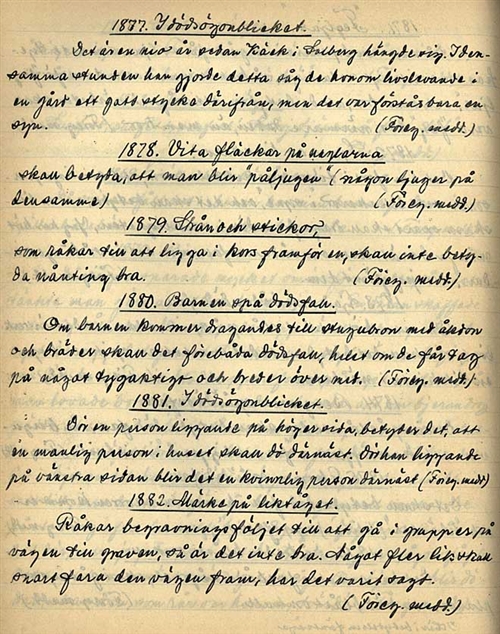 1877. I dödsögonblicket.
Det är en nio år sedan Käck i Solberg hängde sig. I den-
samma stunden han gjorde detta såg de honom livslevande i
en gård ett gott stycke därifrån, men det var förstås bara en
syn. (Föreg. medd.)
1878. Vita fläckar på naglarna
skall betyda, att man blir "påljugen" (någon ljuger på
densamme) (Föreg. medd.)
1879. Strån och stickor,
som råkar till att ligga i kors framför en, skall inte bety-
da nånting bra. (Föreg. medd.)
1880. Barnen spå dödsfall.
Om barnen kommer dragandes till stugubron med åkdon
och bräder skall det förebåda dödsfall, helst om de får tag
på något tygaktigt och breder över med. (Föreg. medd.)
1881. I dödsögonblicket.
Dör en person liggande på höger sida, betyder det, att
en manlig person i huset skall dö därnäst. Dör han liggande
på vänstra sidan blir det en kvinnlig person därnäst (Föreg. medd.)
1882. Märke på liktåget.
Råkar begravningsföljet till att gå i grupper, på
vägen till graven, så är det inte bra. Något fler lik skall
snart fara den vägen fram, har det varit sagt.
(Föreg. medd.)